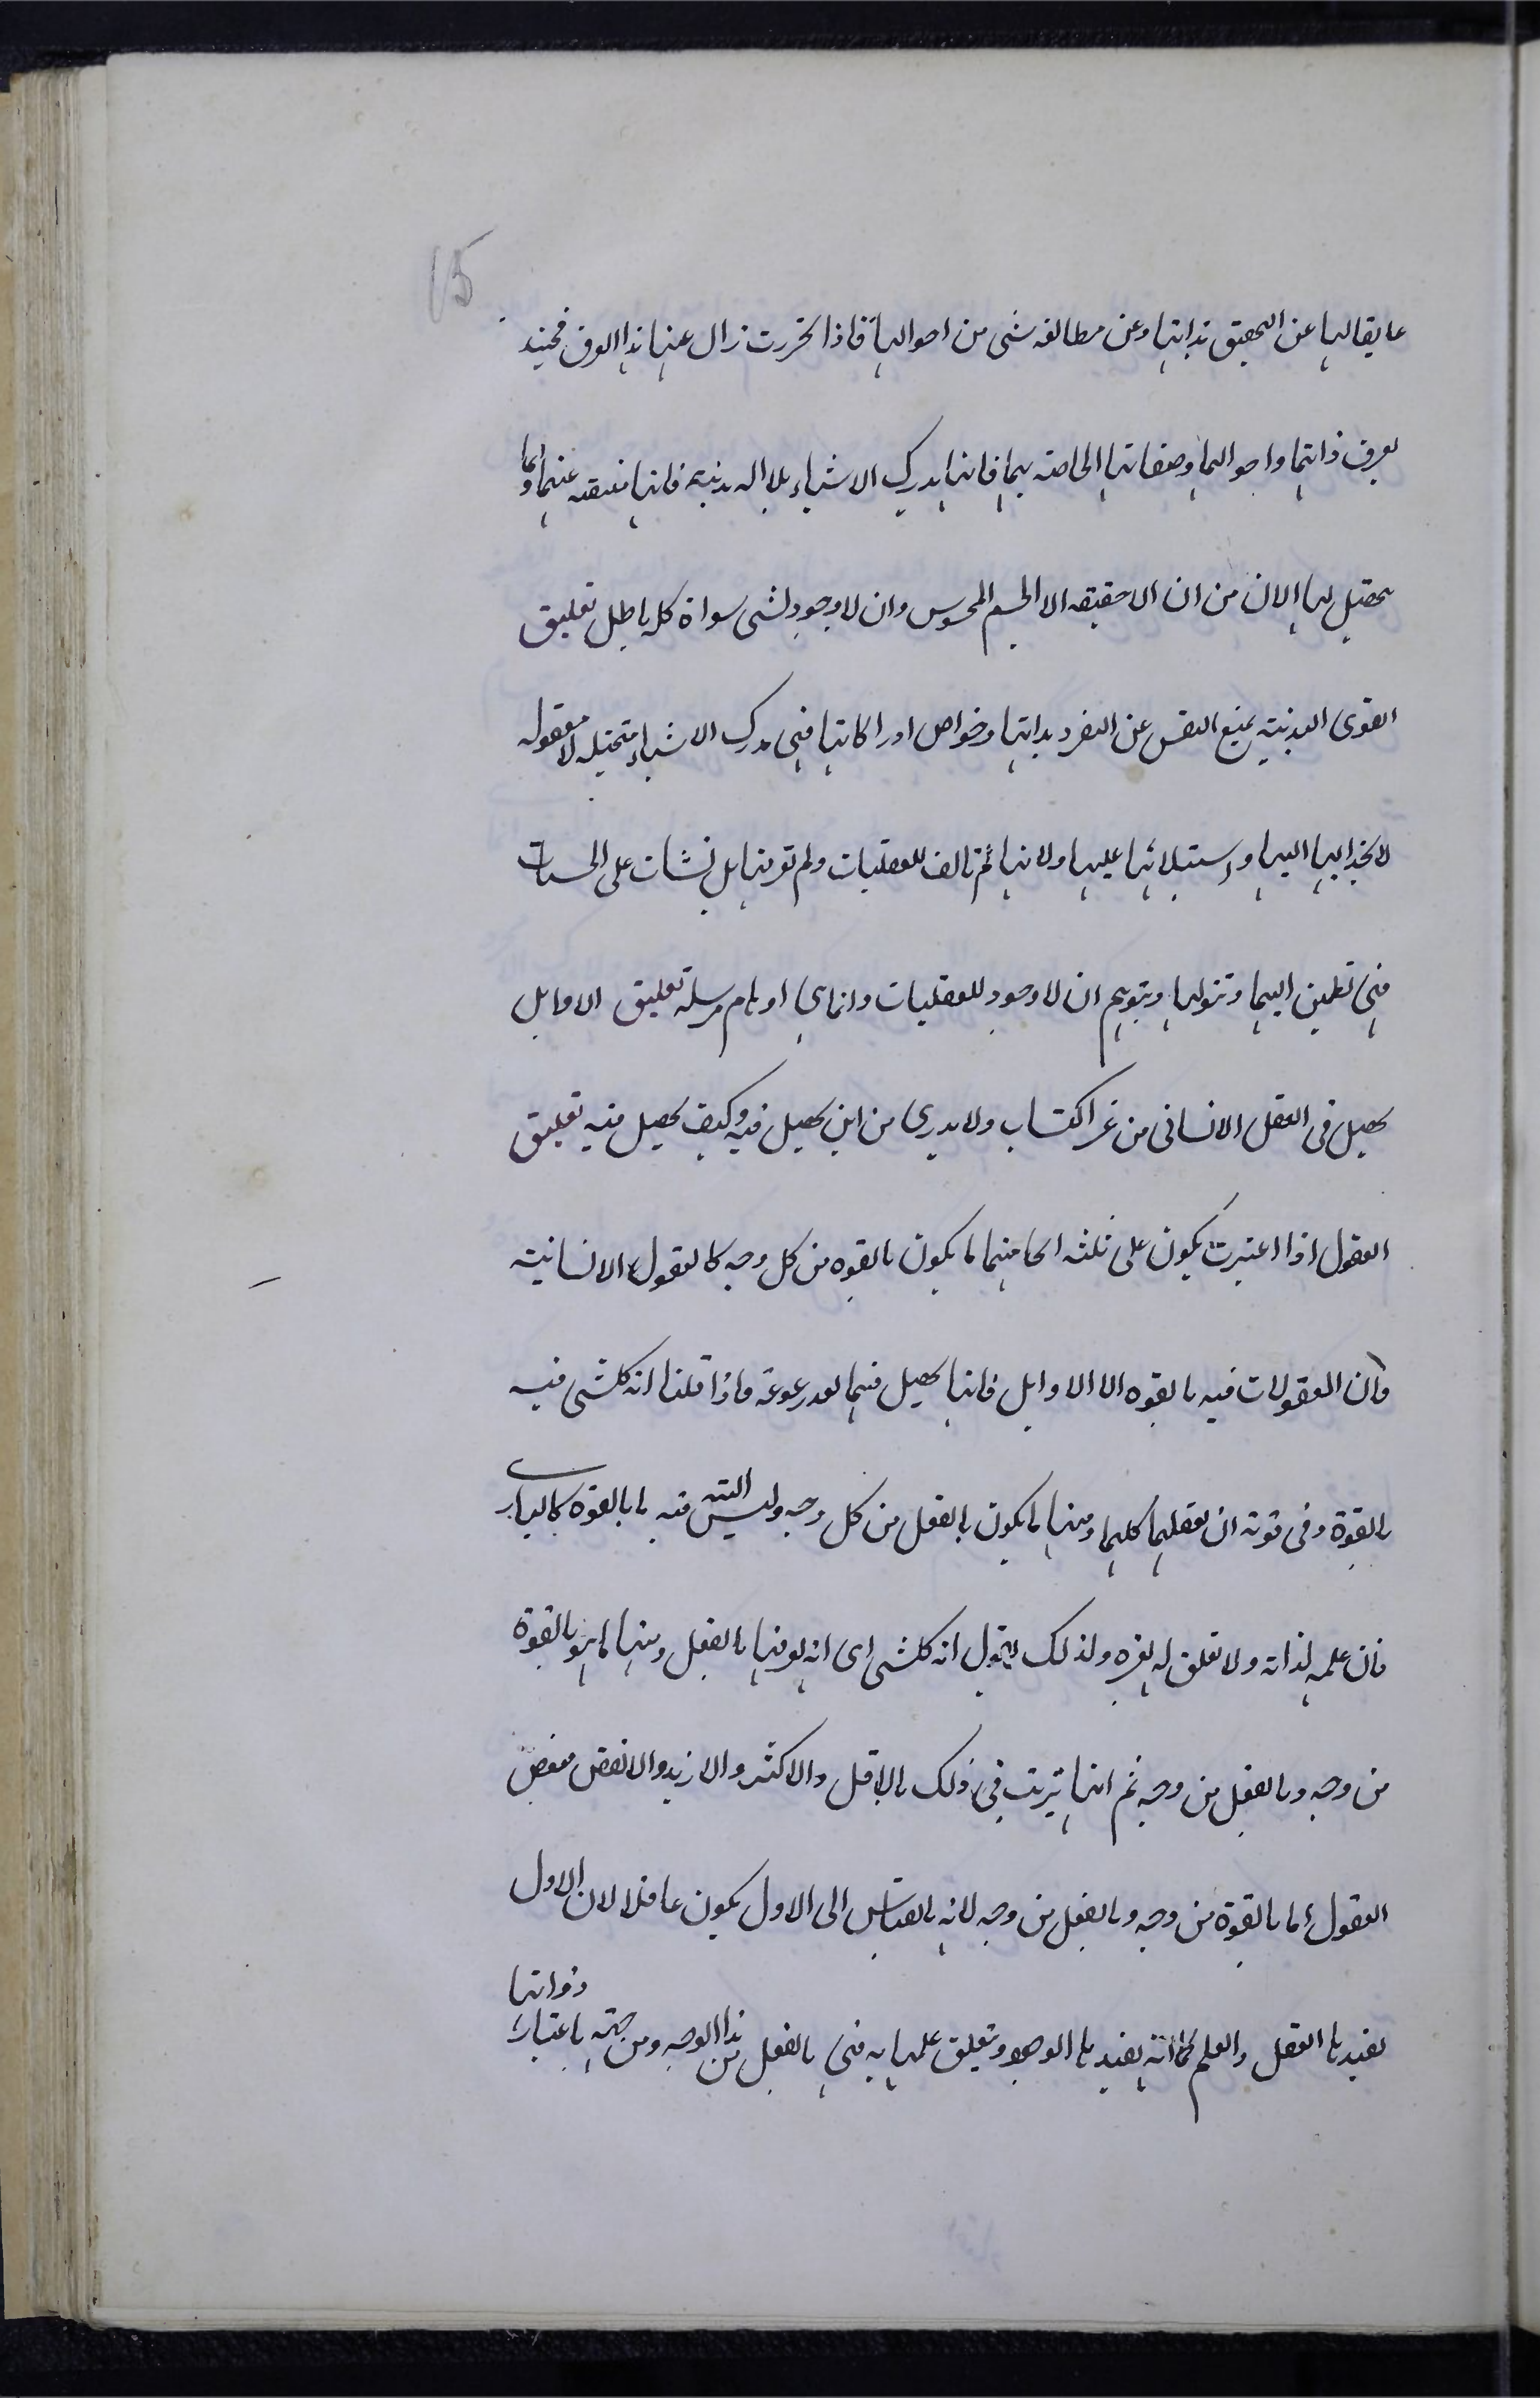 15
عايقا لها عن التحقيق بذاتها وعن مطالعه شى من احوالها فاذا تجردت زال عنها هذا العوق فحينئذ
يعرف ذاتها واحوالها وصفاتها الخاصه بها فانها يدرك الاشياء بلا اله بدنية فانها عنها واما
يتخيل لها الان من ان لا حقيقه الا الجسم المحسوس وان لا وجود لشى سواه كله باطل تعليق
القوى البدنية يمنع النفس عن التفرد بذاتها وخواص ادراكاتها فهى يدرك الاشياء متخيله لا معقوله
لانجذابها اليها واستيلائها عليها ولانها لم تالف للعقليات ولم تعرفها بل نشات على الحسيات
فهى تطمئن اليها وتتولها ويتوهم ان لا وجود للعقليات وانما هى اوهام مرسله تعليق الاوايل
يحصل فى العقل الانسانى من غير اكتساب ولا يدرى من اين يحصل فيه وكيف يحصل فيه تعليق
العقول اذا اعتبرت يكون على ثلثه انحا منها ما يكون بالقوه من كل وجه كالعقول الانسانيه
فان المعقولات فيه بالقوه الا الاوايل فانها يحصل فيها واذا قلنا انه كلشى فيه
بالقوة وفى قوته ان يعقلها كلها ومنها ما يكون بالفعل من كل وجه وليس البته فيه ما بالقوه كالبارى
فان علمه لذاته ولا تعلق له بغيره ولذلك يقول انه كلشى اى انه يعرفها بالفعل ومنها ما هو بالقوة
من وجه وبالفعل من وجه ثم انها يترتب فى ذلك بالاقل والاكثر والازيد والانقص فبعض
العقول اما بالقوة من وجه وبالفعل من وجه لانه بالقياس الى الاول يكون عاقلا لان الاول
يفيدها العقل والعلم كما انه يفيدها الوجود ويتعلق علمها به فهى بالفعل من هذا الوجه ومن جهة باعتبار ذواتها